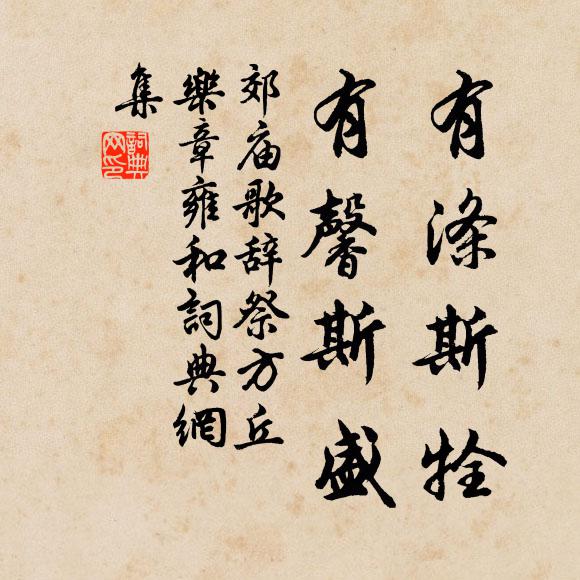 有涤斯牷
有馨斯盛
郊庙歌辞祭方丘
樂章雍和詞典網
集
詞典
网印